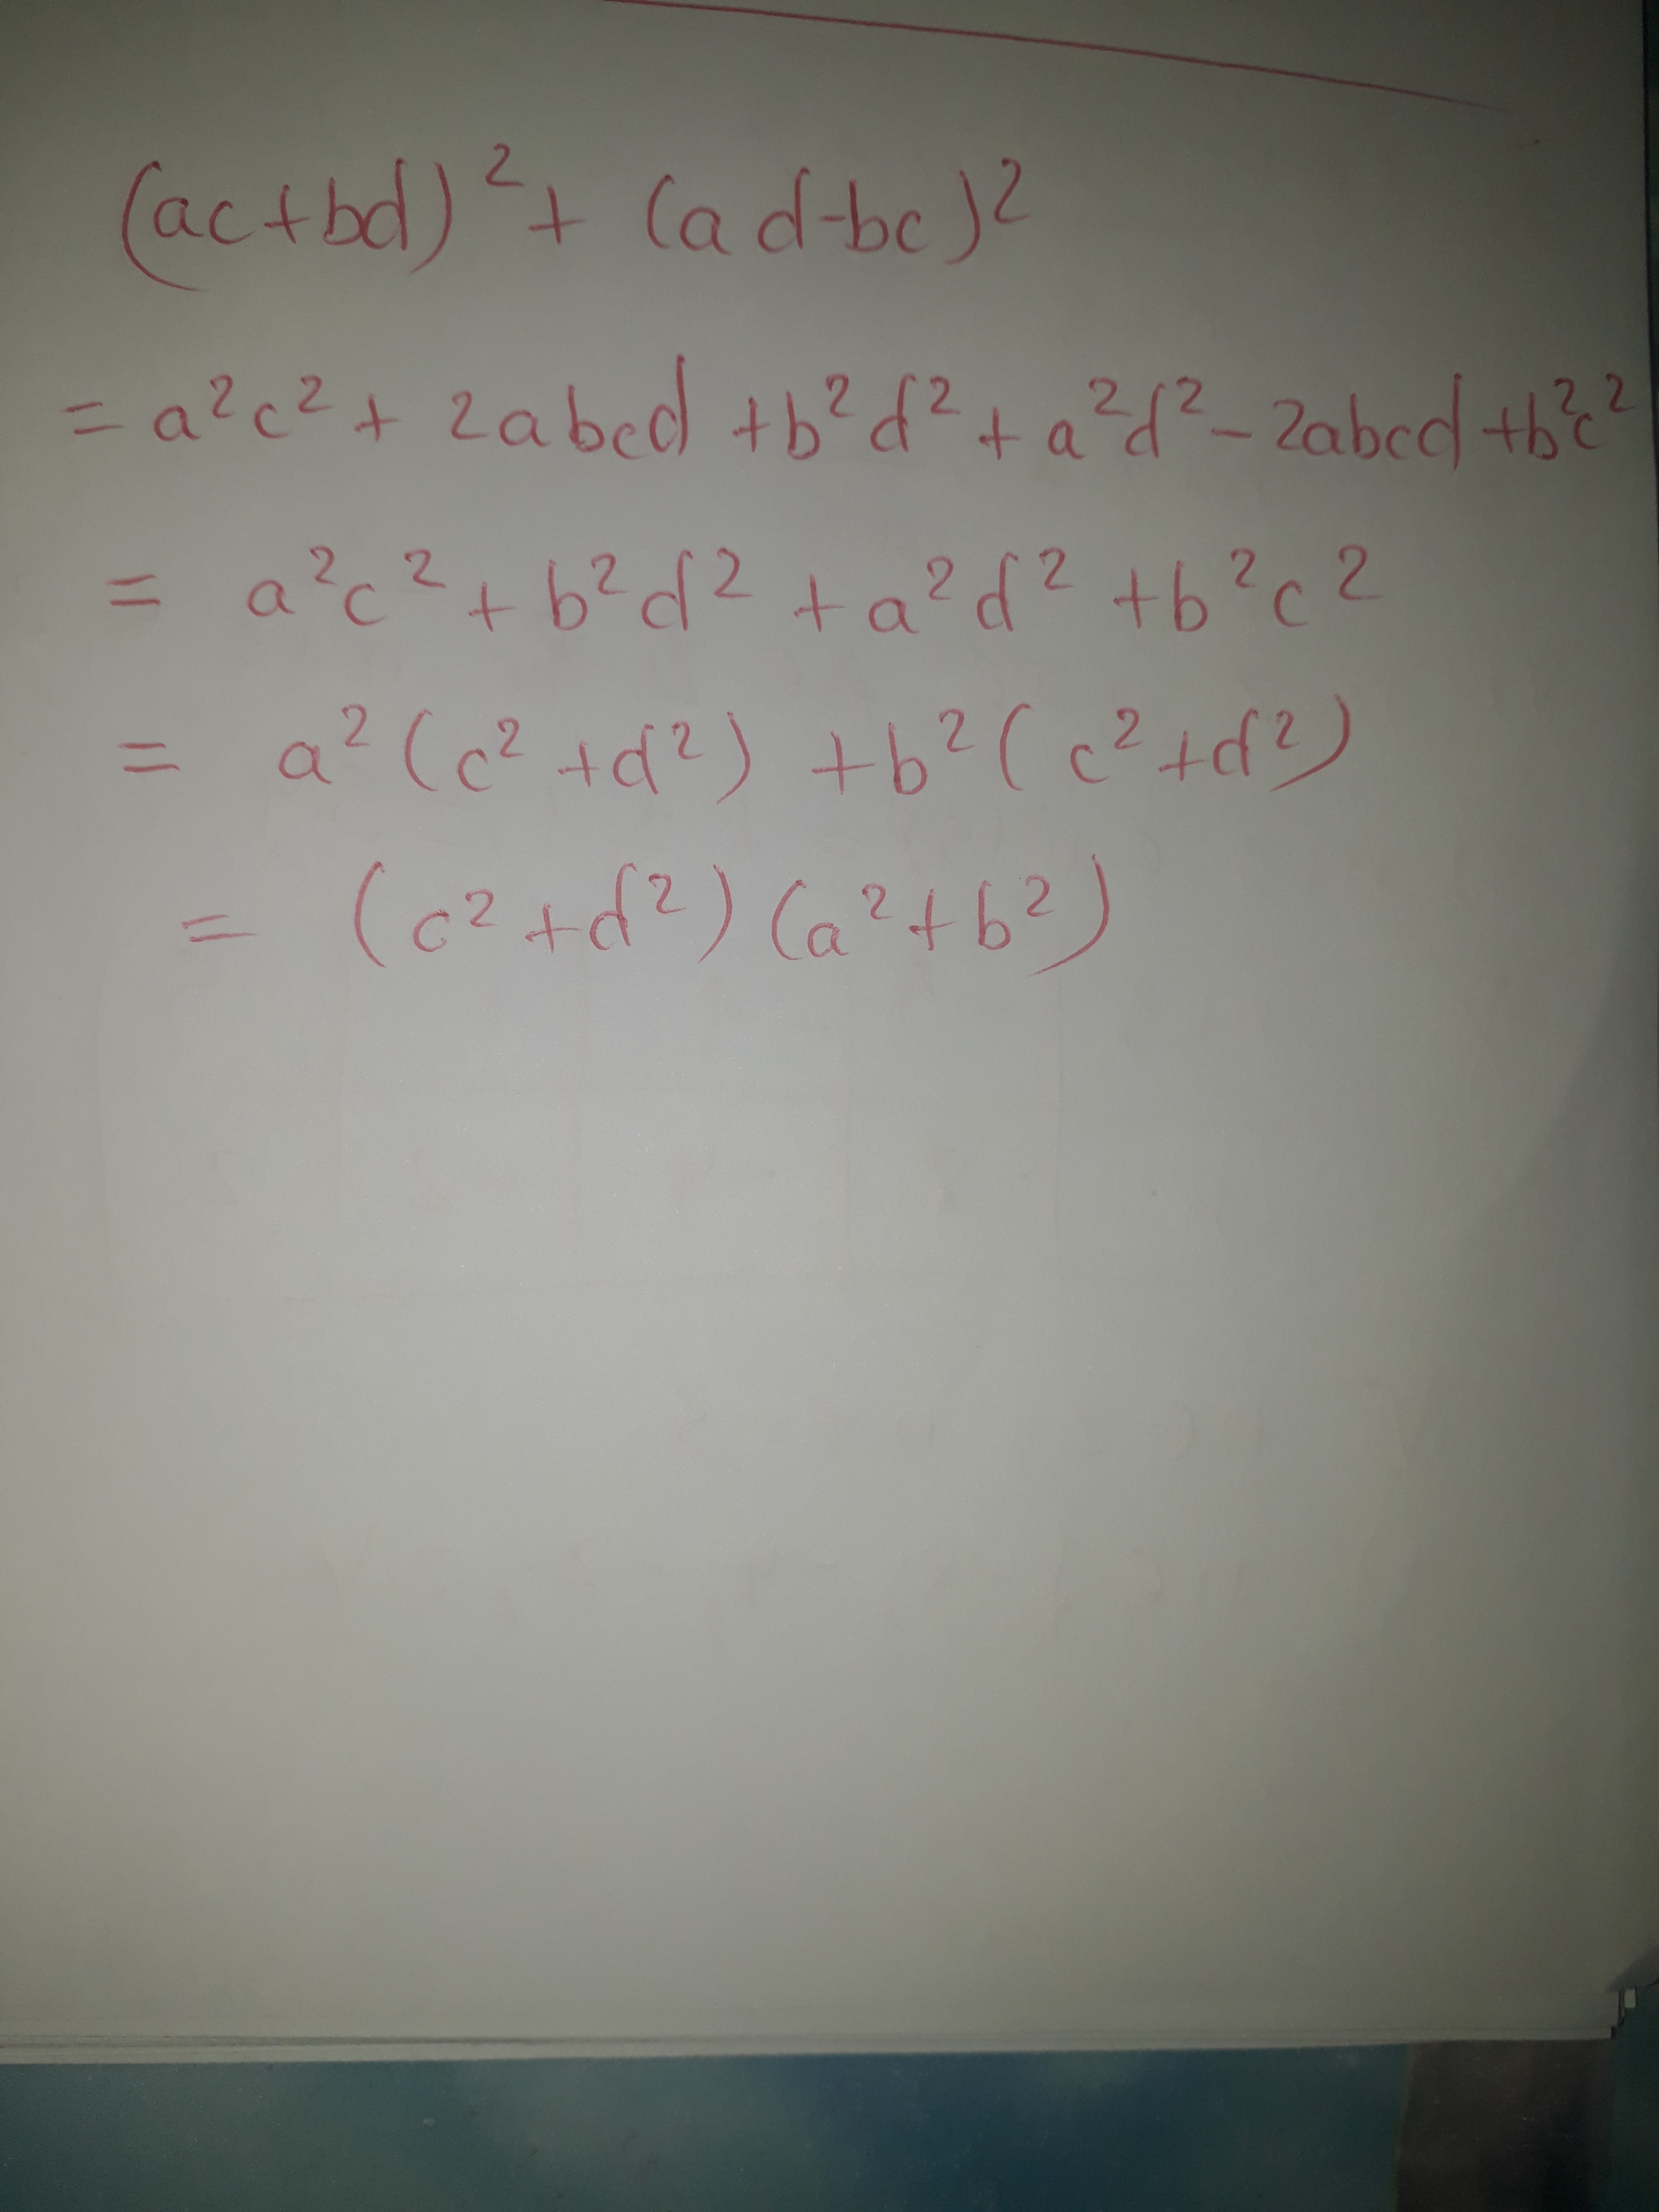 (ac+bd)² + (ad-bc)²
= a²c² + 2abcd + b²d² + a²d² - 2abcd + b²c²
= a²c² + b²d² + a²d² + b²c²
= a²(c²+d²) + b²(c²+d²)
= (c²+d²)(a²+b²)